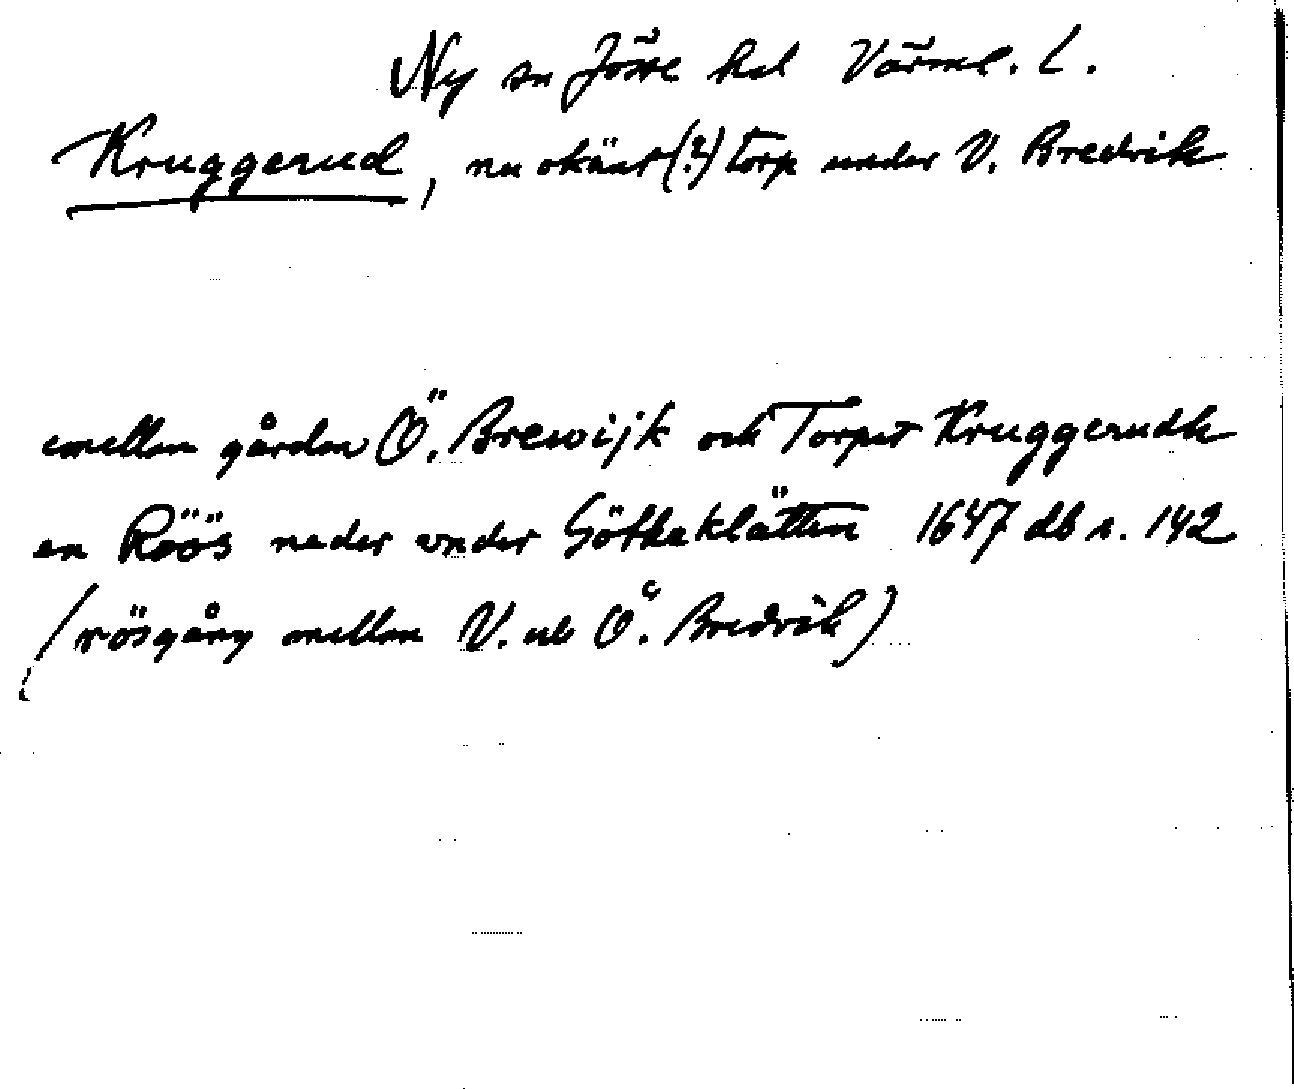 Ny sn Jösse hd Värml. L.
Kruggerud, nu okänt (?) torp under V. Bredvik
emellan gården Ö. Brewijk och Torpet Kruggerudh
en Röös neder vnder Göthaklätten 1647 db s. 142
(rösgång mellan V. ub Ö. Bredvik)